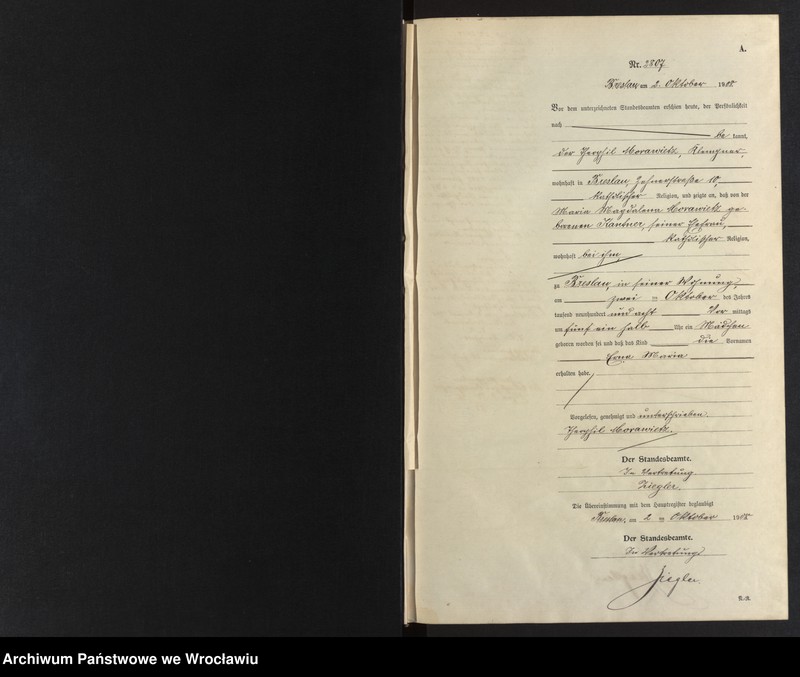 A.
Nr. 2807.
Breslau, am 2. Oktober 1908.
Vor dem unterzeichneten Standesbeamten erschien heute, der Persönlichkeit
nach
be kannt,
der Theophil Morawietz, Klempner,
wohnhaft in Breslau, straße 10,
katholischer Religion, und zeigte an, daß von der
Maria Magdalena Morawietz ge-
borenen Kantner, seiner Ehefrau,
katholischer Religion,
wohnhaft bei ihm,
zu Breslau, in seiner Wohnung,
am zwei ten Oktober des Jahres
tausend neunhundert und acht Vor mittags
um fünf ein halb Uhr ein Mädchen
geboren worden sei und daß das Kind die Vornamen
Erna Maria
erhalten habe.
Vorgelesen, genehmigt und unterschrieben.
Theophil Morawietz.
Der Standesbeamte.
In Vertretung
Ziegler.
Die Übereinstimmung mit dem Hauptregister beglaubigt
Breslau, am 2 ten Oktober 1908.
Der Standesbeamte.
In Vertretung
Ziegler.
Archiwum Państwowe we Wrocławiu